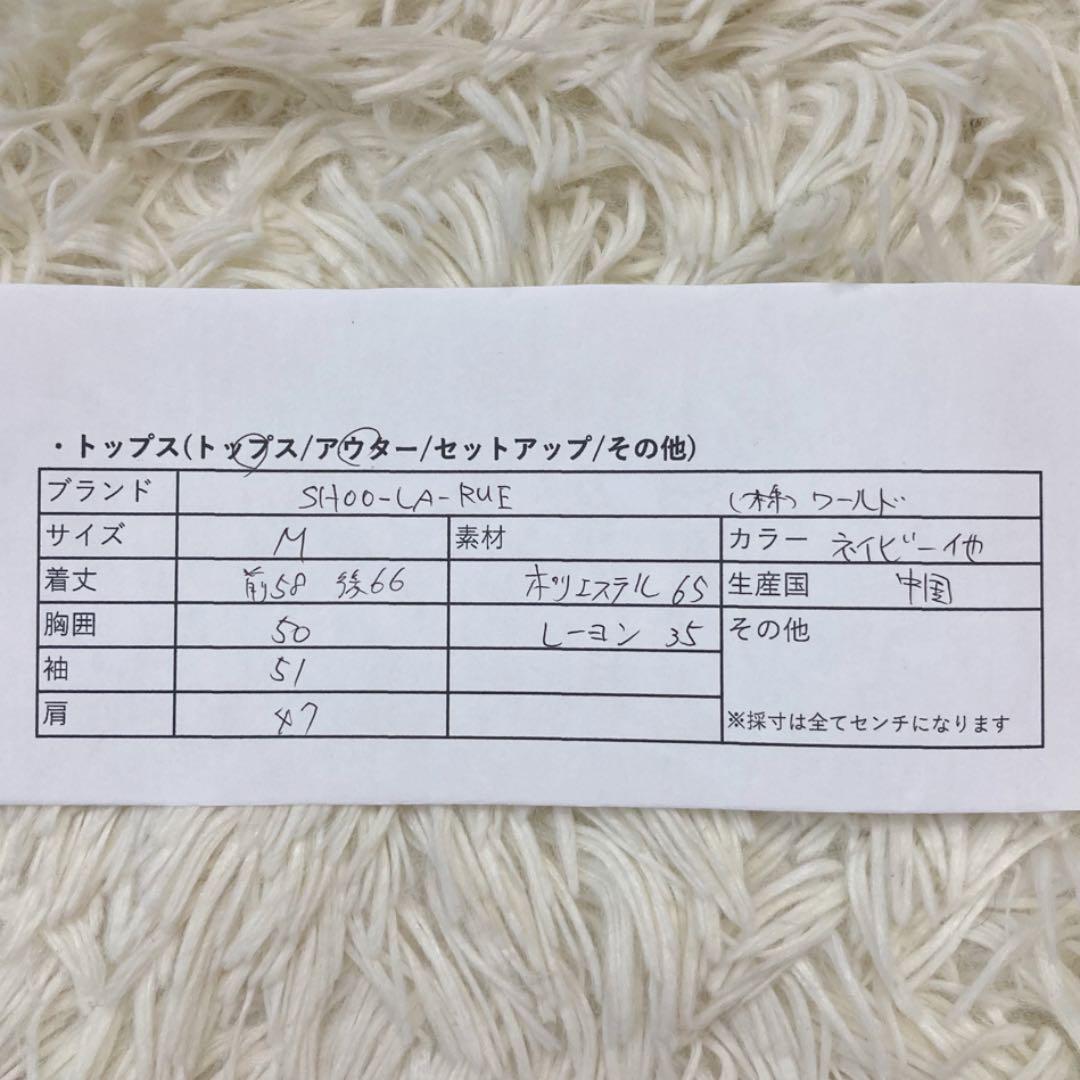 ・トップス(トップス/アウター/セットアップ/その他)
ブランド SHOO-LA-RUE (株)ワールド
サイズ M 素材 カラー ネイビー他
着丈 前58 後66 ポリエステル 65 生産国 中国
胸囲 50 レーヨン 35 その他
袖 51
肩 47 ※採寸は全てセンチになります